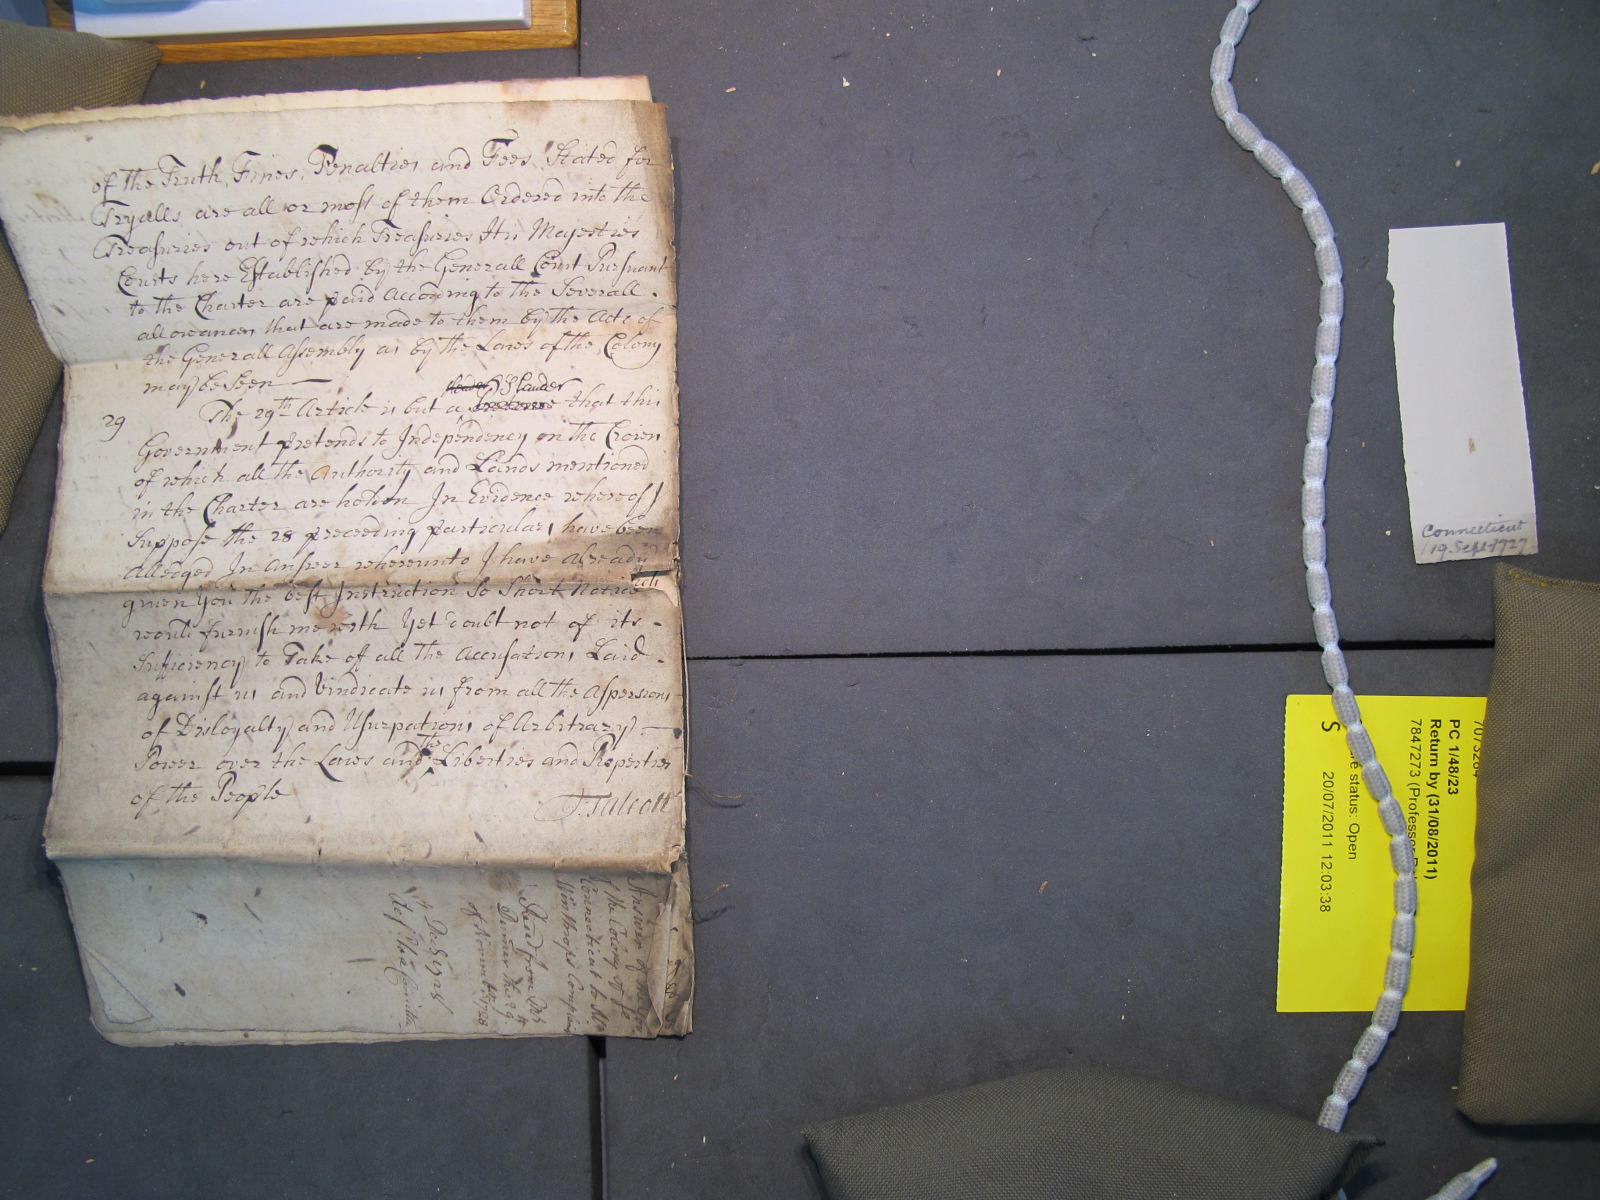 of the Truth, Fines, Penalties and Fees Stated for
Tryalls are all or most of them Ordered into the
Treasuries out of which Treasuries His Majesties
Courts here Established by the Generall Court Pursuant
to the Charter are paid According to the Severall
allowances that are made to them by the Acts of
the Generall Assembly as by the Laws of the Colony
may be Seen —
Slander
29 The 29th Article is but a that this
Government pretends to Independency on the Crown
of which all the Authority and Lands mentioned
in the Charter are holden In Evidence whereof I
Suppose the 28 preceeding particulars have been
alledged In Answer whereunto I have Already
given You the best Instruction So Short Notice
would furnish me with Yet doubt not of its
Sufficiency to Take of all the Accusations Laid
against us and Vindicate us from all the Aspersions
of Disloyalty and Usurpations of Arbitrary
the
Power over the Laws and Liberties and Properties
of the People
J. Talcott
Answer of
of the Colony of
Connecticut to Mr
Winthrops Complaint
from Mr
the 29
of Novemb. 1728
Connecticut
19 Sept 1727
PC 1/48/23
Return by (31/08/2011)
7847273 (Professor
status: Open
20/07/2011 12:03:38
S